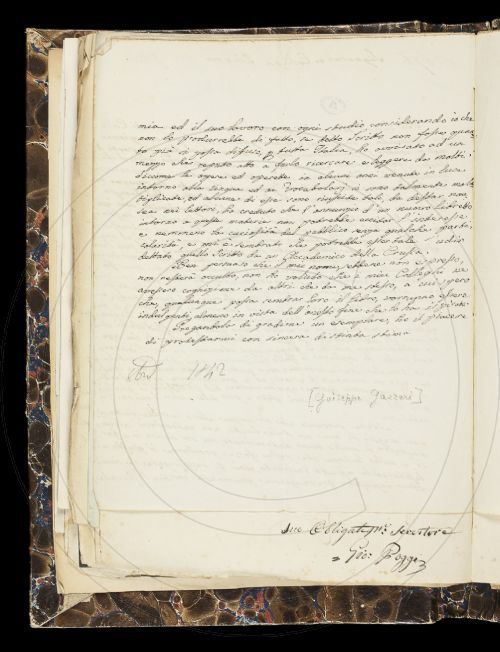 mia ed il suo lavoro con ogni studio considerando io che
con le produrrebbe di fatto, se detto scritto non fosse quan
to più si possa diffuso, p. tutta Italia, Ho avvisato ad un
mezzo che reputo atto a farlo ricercare e leggere da molti.
Siccome le opere ed operette in alcuni anni venute in luce
intorno alla lingua ed ai Vocabolari si sono talmente mol
tiplicate, ed alcune di esse sono riuscite tali, da destar nau
sea nei lettori, ho creduto che l'annunzio d'un nuovo libretto
intorno a questa materia non potrebbe eccitar l'interesse
e nemmeno la curiosità del pubblico senza qualche parti
colarità, e mi è sembrato che potrebbe esser tale l'udir
dettato quello scritto da un Accademico della Crusca.
Ben persuaso che il mio nome, sebbene non espresso,
non resterà occulto, non ho voluto che i miei Colleghi ne
avessero cognizione da altri che da me stesso, a cui spero
che, qualunque possa sembrar loro il fine, vorranno essere
indulgenti, almeno in vista dell'onesto fine che lo ha
Pregandola di gradirne un esemplare, ho il piacere
di protestarmi con sincera distinta stima
1842
[Giuseppe Gazzeri]
Suo Obbligatis.mo Servitore
= Gio: Poggi